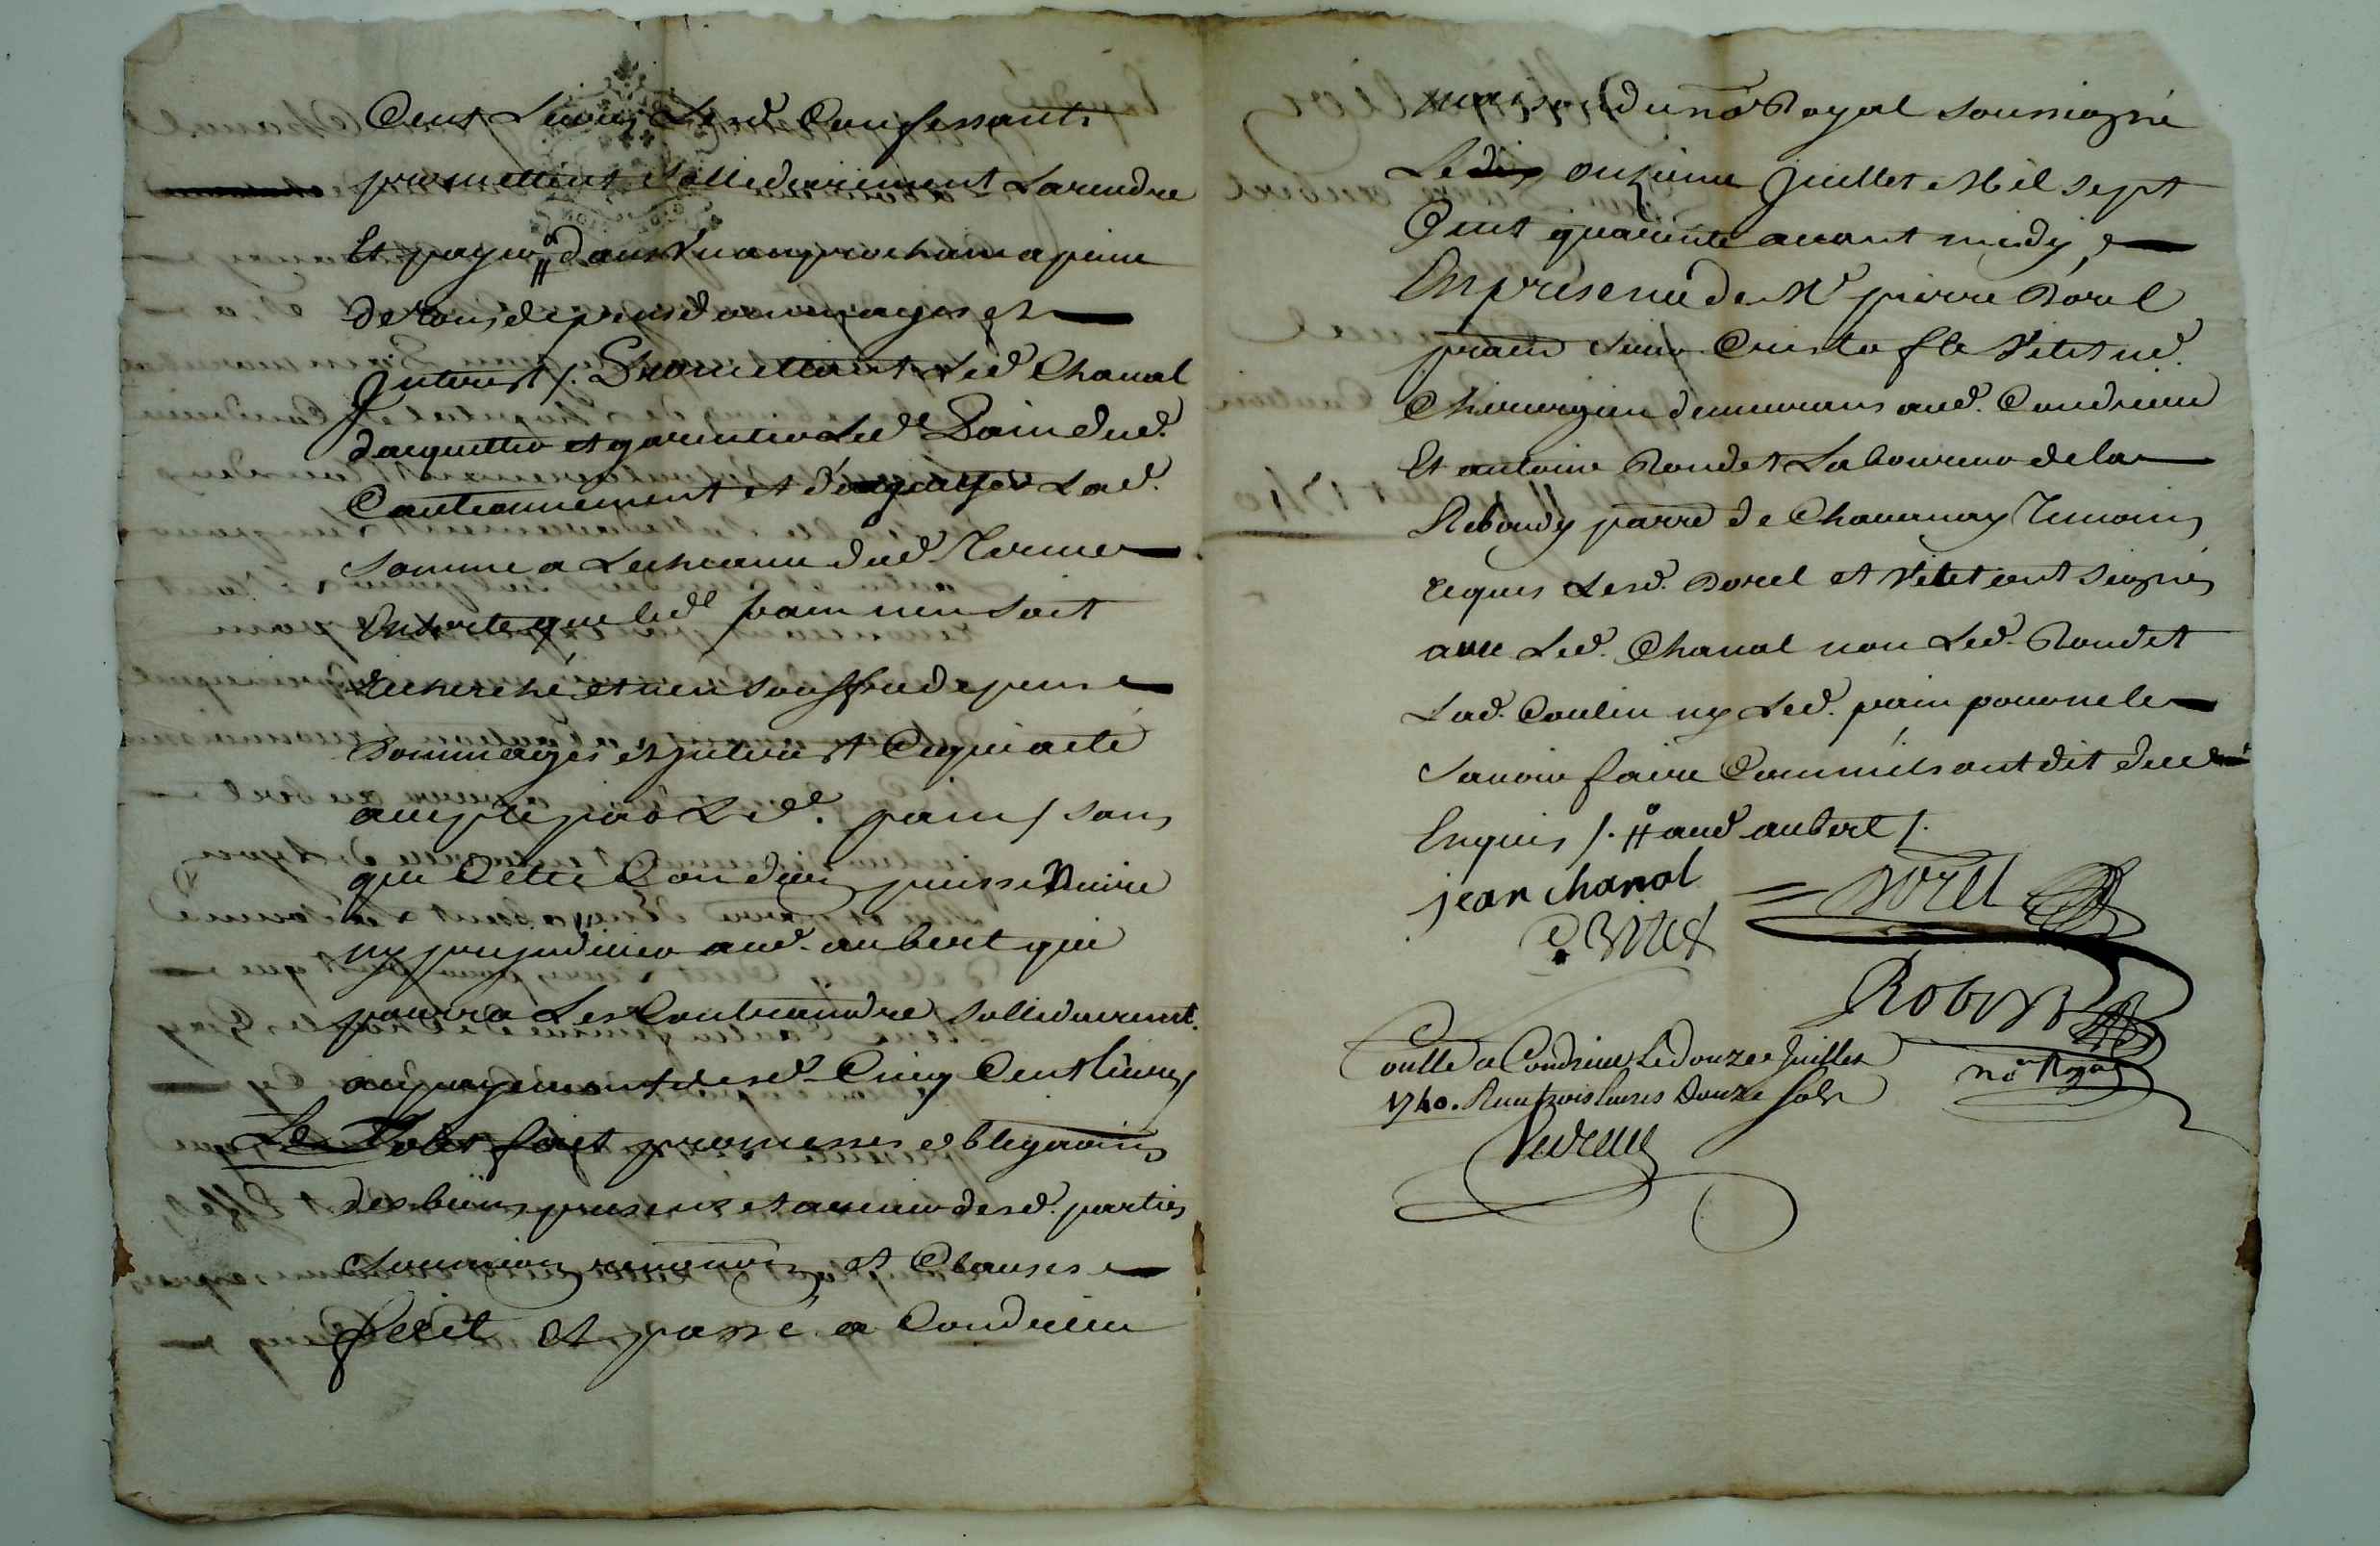 Cent Livres Lesd. Confessants
promettent sollidairement La rendre
Et payer # dans d'un an prochain a peine
de tous depens dommages et
Interest /. Promettant Led. Chanal
d'acquitter et garentir Led. Pain dud.
Cautionnement et d'acquitter Lad.
somme a Lecheance dud. Terme
En sorte que led. pain nen soit
recherché et nen souffre depense
Dommages et Interest Ce qui a été
accepté par Led. pain / sans
que Cette Condition puisse Nuire
ny prejudicier aud. aubert qui
pourra Les Contraindre sollidairement
au payement desd. Cinq Cent Livres
Le Tout fait promesses obligaons
des biens presens et avenir desd. parties
soumions renonons et Clauses
fait et passé a Condrieu
maison du no.re Royal soussigné
Le onzieme Juillet Mil sept
Cent quarente avant midy
En presence de Me pierre Borel
praticien sieur Cristofle Vitet me.
Chirurgien demeurans aud. Condrieu
Et antoine Rondet Laboureur de la
Ribaudy parre de Chavanay Temoins
requis Lesd. Borel et Vitet ont signés
avec Led. Chanal non Led. Rondet
Lad. Coulin ny Led. pain pour ne le
savoir faire Comm'ils ont dit de ce
Enquis /. # aud aubert /.
jean chanal = Borel
C Vitet
Robert
no.re Royal
Conllé a Condrieu Le douze Juillet
1740. Recu trois livres Douze sols